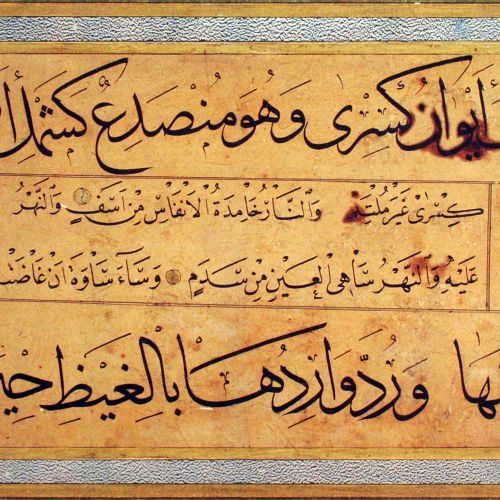 ايوان كسرى وهو منصدع كشمل
كسرى غير ملتئم والنار خامدة الانفاس من اسف والنهر
عليه والنهر ساهي العين من سدم وساء ساوة ان غاضت
ورد واردها بالغيظ حين